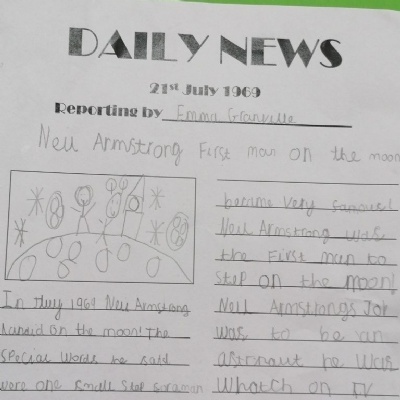 DAILY NEWS
21st July 1969
Reporting by Emma Granville
Neil Armstrong First man on the moon
In Jluy 1969 Neil Armstrong
landid on the moon! The
special words he said
were one small step for a man
became very famous!
Neil Armstrong was
the First man to
step on the moon!
Neil Armstrongs Job
was to be an
astronaut he was
whatch on TV